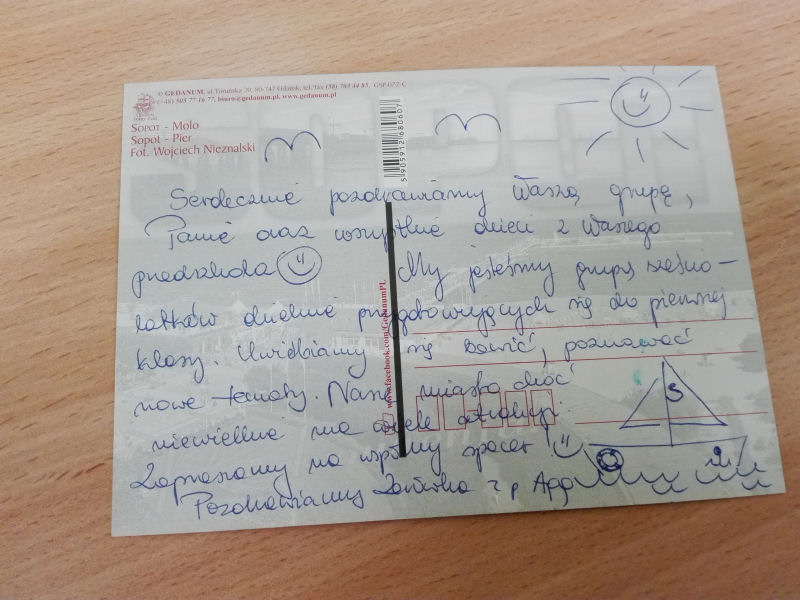 © GEDANUM, ul.Toruńska 20, 80-747 Gdańsk, tel./fax (58) 763 44 85, GSP-072-C
(+48) 505 77 16 77, biuro@gedanum.pl, www.gedanum.pl
SOPOT - Molo
Sopot - Pier
Fot. Wojciech Nieznalski
5905912680607
www.facebook.com/GedanumPL
Serdecznie pozdrawiamy Waszą grupę,
Panie oraz wszystkie dzieci z Waszego
przedszkola
My jesteśmy grupą sześcio-
latków dzielnie przygotowujących się do pierwszej
klasy. Uwielbiamy się bawić, poznawać
nowe tematy. Nasze miasto choć
niewielkie ma wiele atrakcji.
Zapraszamy na wspólny spacer!
Pozdrawiamy z p.
S